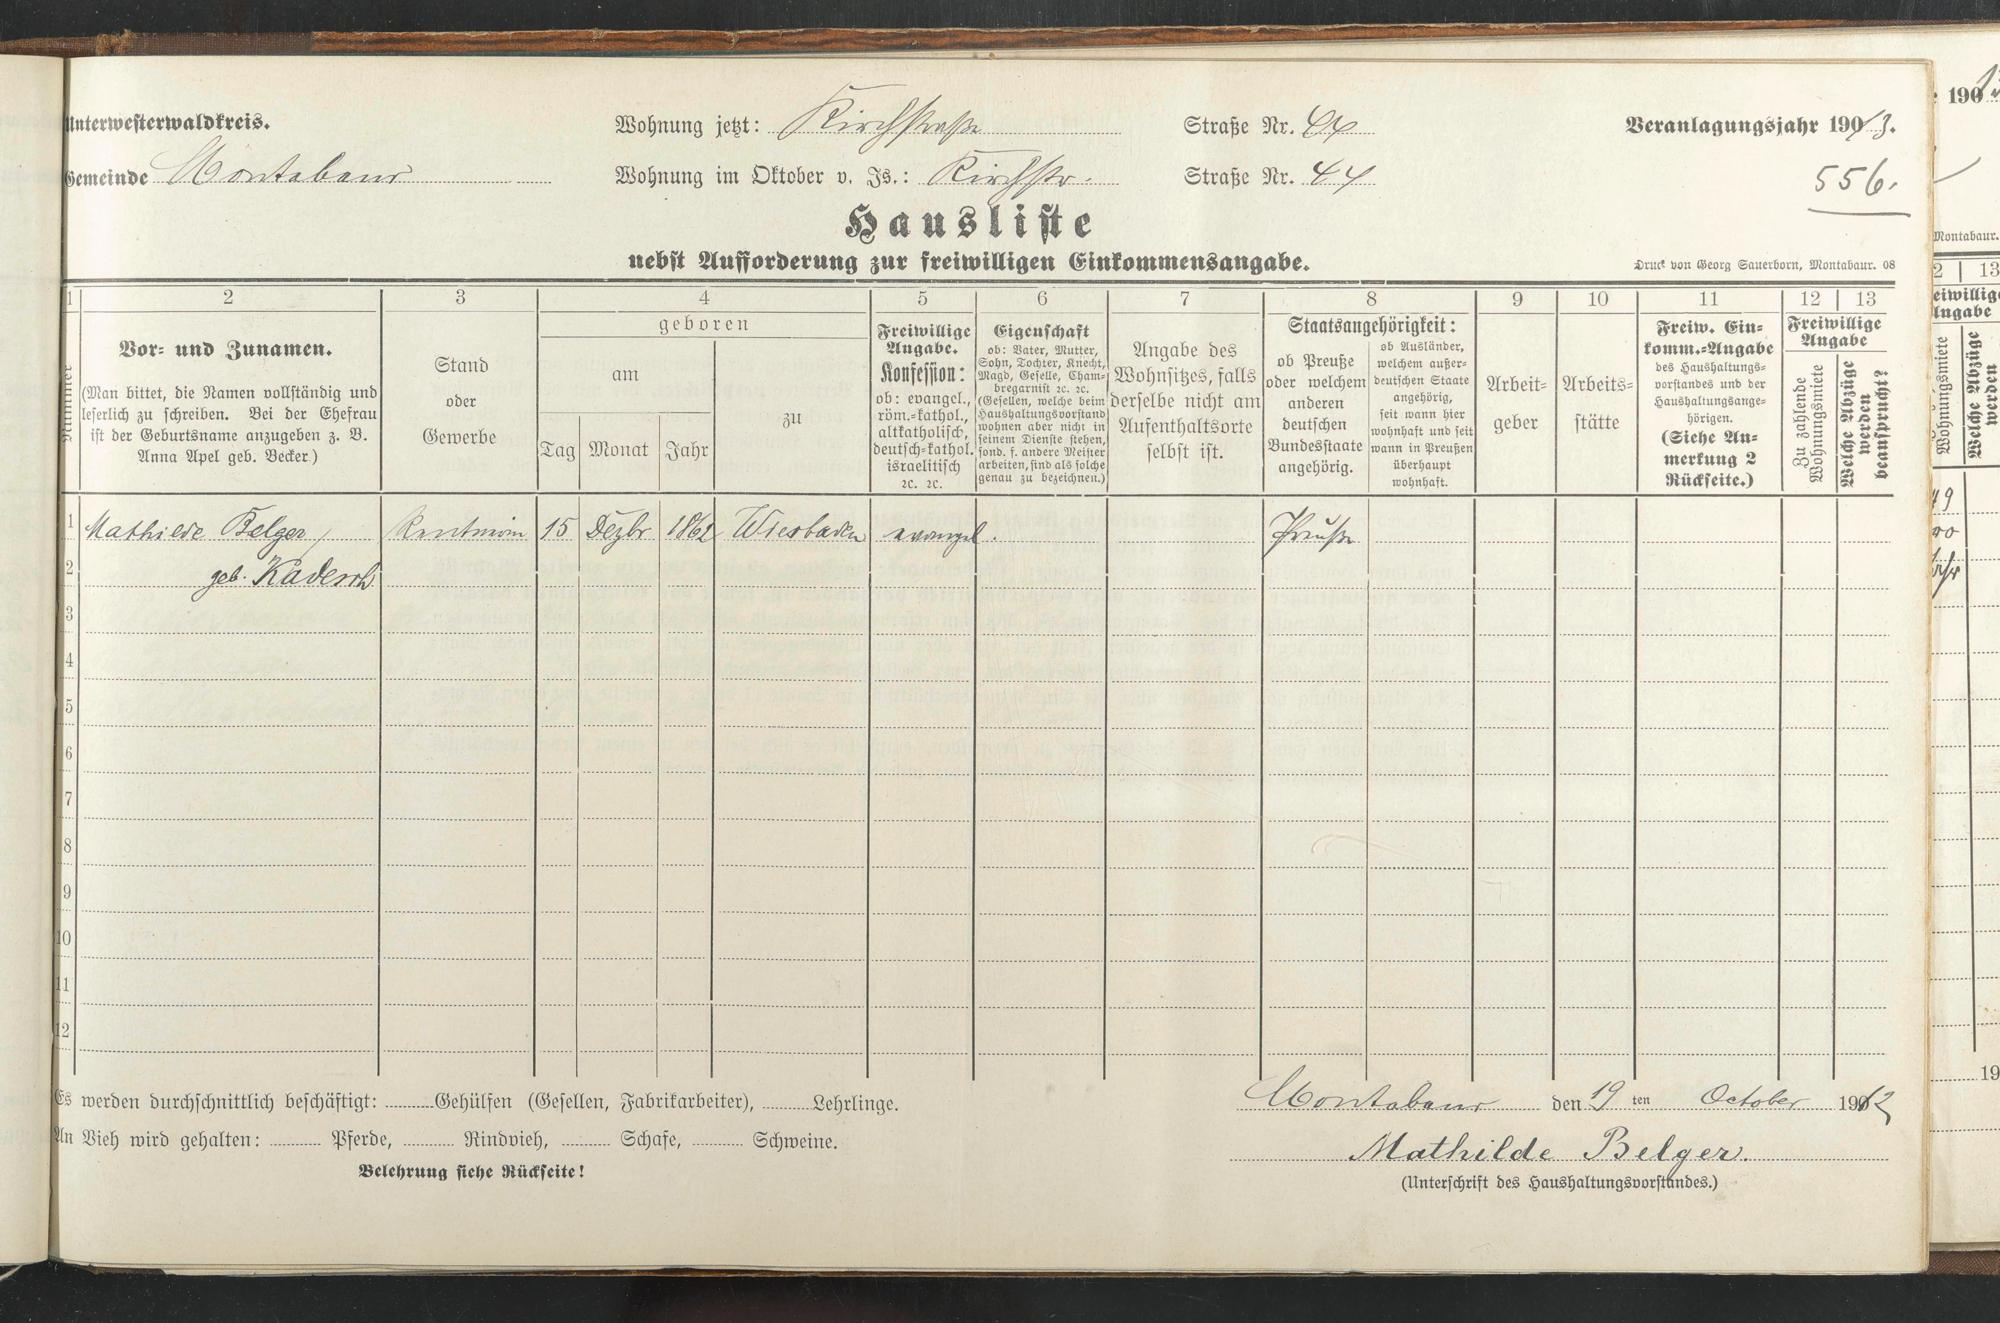 Unterwesterwaldkreis.
Wohnung jetzt: Kirchstraße Straße Nr. 44
Veranlagungsjahr 1913.
Gemeinde Montabaur
Wohnung im Oktober v. Js.: Kirchstr. Straße Nr. 44
556.
Hausliste
nebst Aufforderung zur freiwilligen Einkommensangabe.
Druck von Georg Sauerborn, Montabaur. 08
1 2 3 4 5 6 7 8 9 10 11 12 13
Nummer
Vor- und Zunamen.
(Man bittet, die Namen vollständig und
leserlich zu schreiben. Bei der Ehefrau
ist der Geburtsname anzugeben z. B.
Anna Apel geb. Becker)
Stand
oder
Gewerbe
geboren
am
Tag Monat Jahr
zu
Freiwillige
Angabe.
Konfession:
ob: evangel.,
röm.-kathol.,
altkatholisch,
deutsch-kathol.
israelitisch
ꝛc. ꝛc.
Eigenschaft
ob: Vater, Mutter,
Sohn, Tochter, Knecht,
Magd, Geselle, Cham-
bregarnist ꝛc. ꝛc.
(Gesellen, welche beim
Haushaltungsvorstand
wohnen aber nicht in
seinem Dienste stehen,
sond. f. andere Meister
arbeiten, sind als solche
genau zu bezeichnen.)
Angabe des
Wohnsitzes, falls
derselbe nicht am
Aufenthaltsorte
selbst ist.
Staatsangehörigkeit:
ob Preuße
oder welchem
anderen
deutschen
Bundesstaate
angehörig.
ob Ausländer,
welchem außer-
deutschen Staate
angehörig,
seit wann hier
wohnhaft und seit
wann in Preußen
überhaupt
wohnhaft.
Arbeit-
geber
Arbeits-
stätte
Freiw. Ein-
komm.-Angabe
des Haushaltungs-
vorstandes und der
Haushaltungsange-
hörigen.
(Siehe An-
merkung 2
Rückseite.)
Freiwillige
Angabe
Zu zahlende
Wohnungsmiete
Welche Abzüge
werden
beansprucht?
1 Mathilde Belger, Rentnerin 15 Dezbr 1862 Wiesbaden evangel. Preuße
2 geb. Kadesch
3
4
5
6
7
8
9
10
11
12
Es werden durchschnittlich beschäftigt: Gehülfen (Gesellen, Fabrikarbeiter), Lehrlinge.
An Vieh wird gehalten: Pferde, Rindvieh, Schafe, Schweine.
Belehrung siehe Rückseite!
Montabaur den 19 ten October 1912
Mathilde Belger.
(Unterschrift des Haushaltungsvorstandes.)
190
Montabaur.
2 13
Freiwillige
Angabe
Wohnungsmiete
Welche Abzüge
werden
19